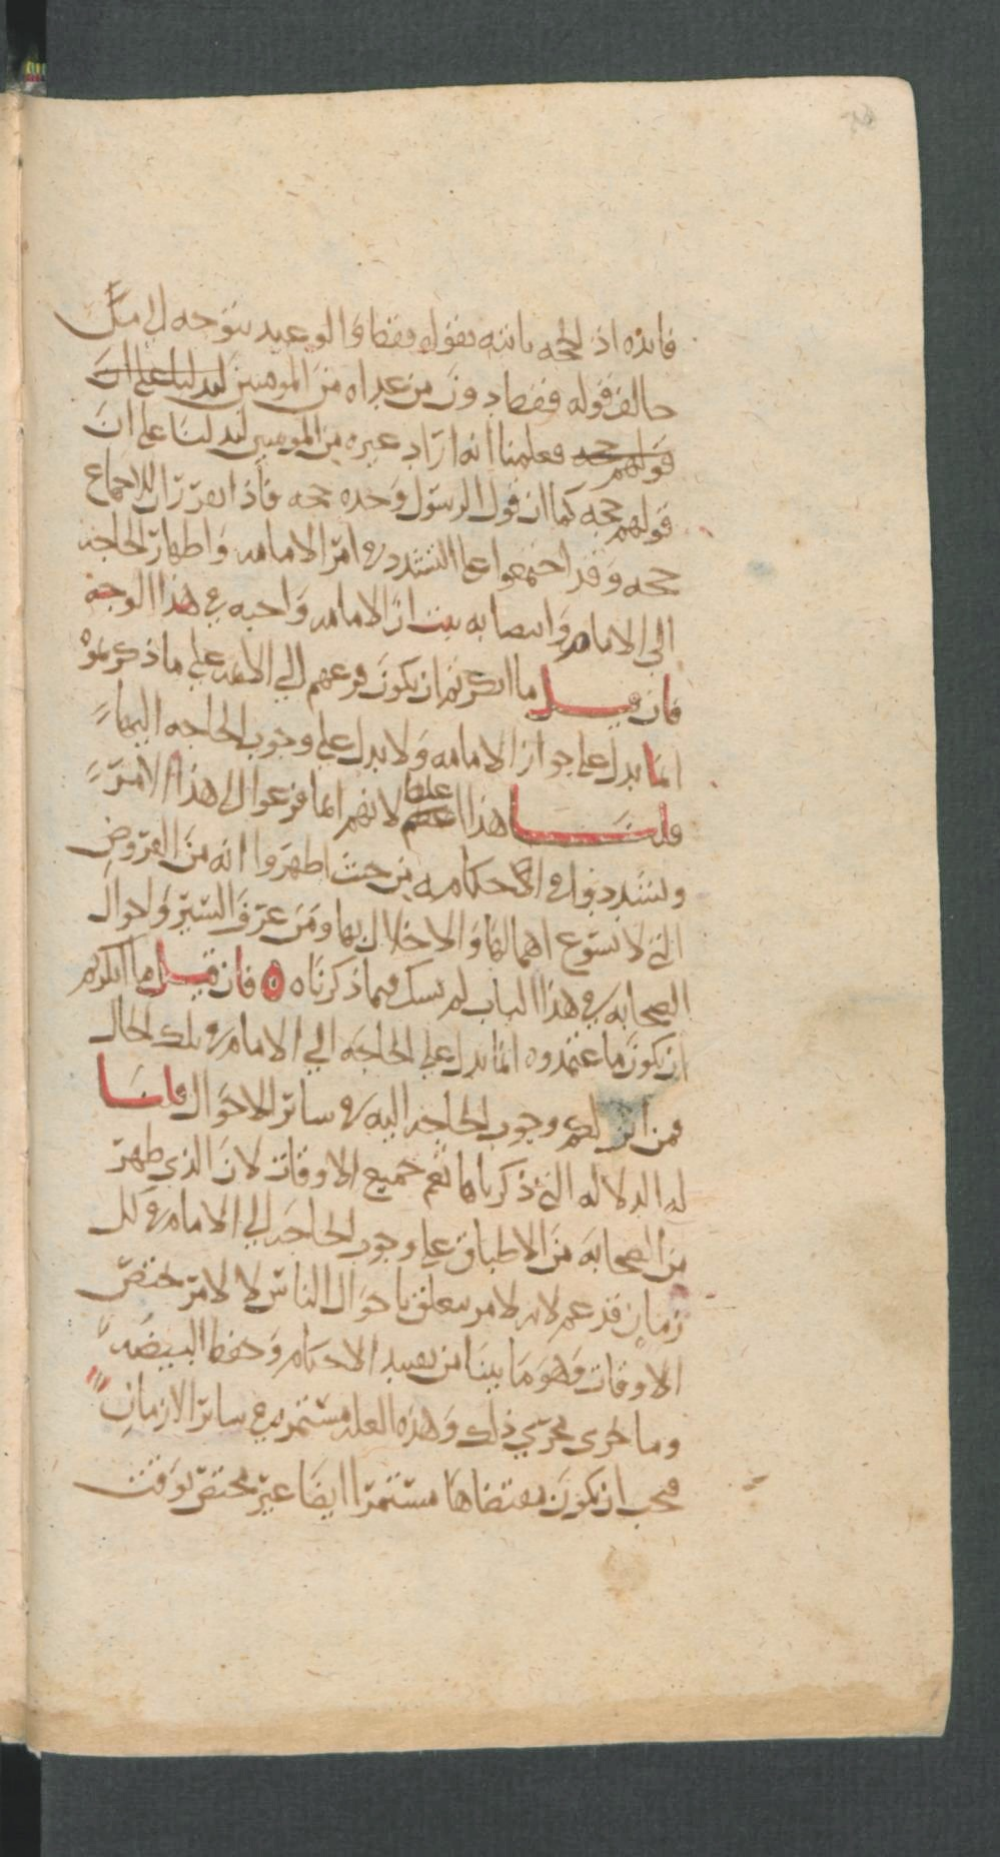 فائده اذ الحجه ثابته بقوله فقط والوعيد يتوجه الى مثل
خالف قوله فقط دون من عداه من المومنين ليدلنا على ان
قولهم حجه فعلمنا انه اراد غيره من المومنين ليدلنا على ان
قولهم حجه كما ان قول الرسول وحده حجه فاذا تقرر ان الاجماع
حجه وقد اجمعوا على التشدد في امر الامامه واظهار الحاجه
الى الامام وانتصابه ثبت ان الامامه واجبه في هذا الوجه
فان قيل ما انكرتم ان يكون فزعهم الى الامام على ما ذكرتموه
انما يدل على جواز الامامه ولا يدل على وجوب الحاجه اليها
قلنا هذا غلط لانهم انما فزعوا الى هذا الامر
وتشددوا في احكامه من حيث اظهروا انه من الفروض
التي لا تسوغ اهمالها والاخلال بها ومن عرف السير واحوال
الصحابه في هذا الباب لم يشك فيما ذكرناه فان قيل ما انكرتم
ان يكون ما اعتمدوه انما يدل على الحاجه الى الامام في تلك الحال
فمن اين لكم وجوب الحاجه اليه في سائر الاحوال قلنا
له الدلاله التي ذكرناها تعم جميع الاوقات لان الذي ظهر
من الصحابه من الاطباق على وجوب الحاجه الى الامام في كل
زمان قد عم لانه لامر يتعلق باحوال الناس لا لامر يختص
الاوقات وهو ما بينا من تنفيذ الاحكام وحفظ البيضه
وما جرى مجرى ذلك وهذه العله مستمره في سائر الازمان
فيجب ان يكون مقتضاها مستمرا ايضا غير مختص بوقت